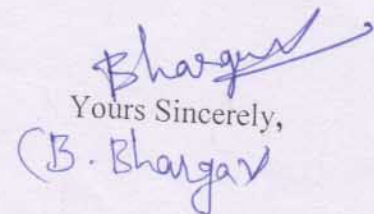 Bhargav
Yours Sincerely,
(B. Bhargav